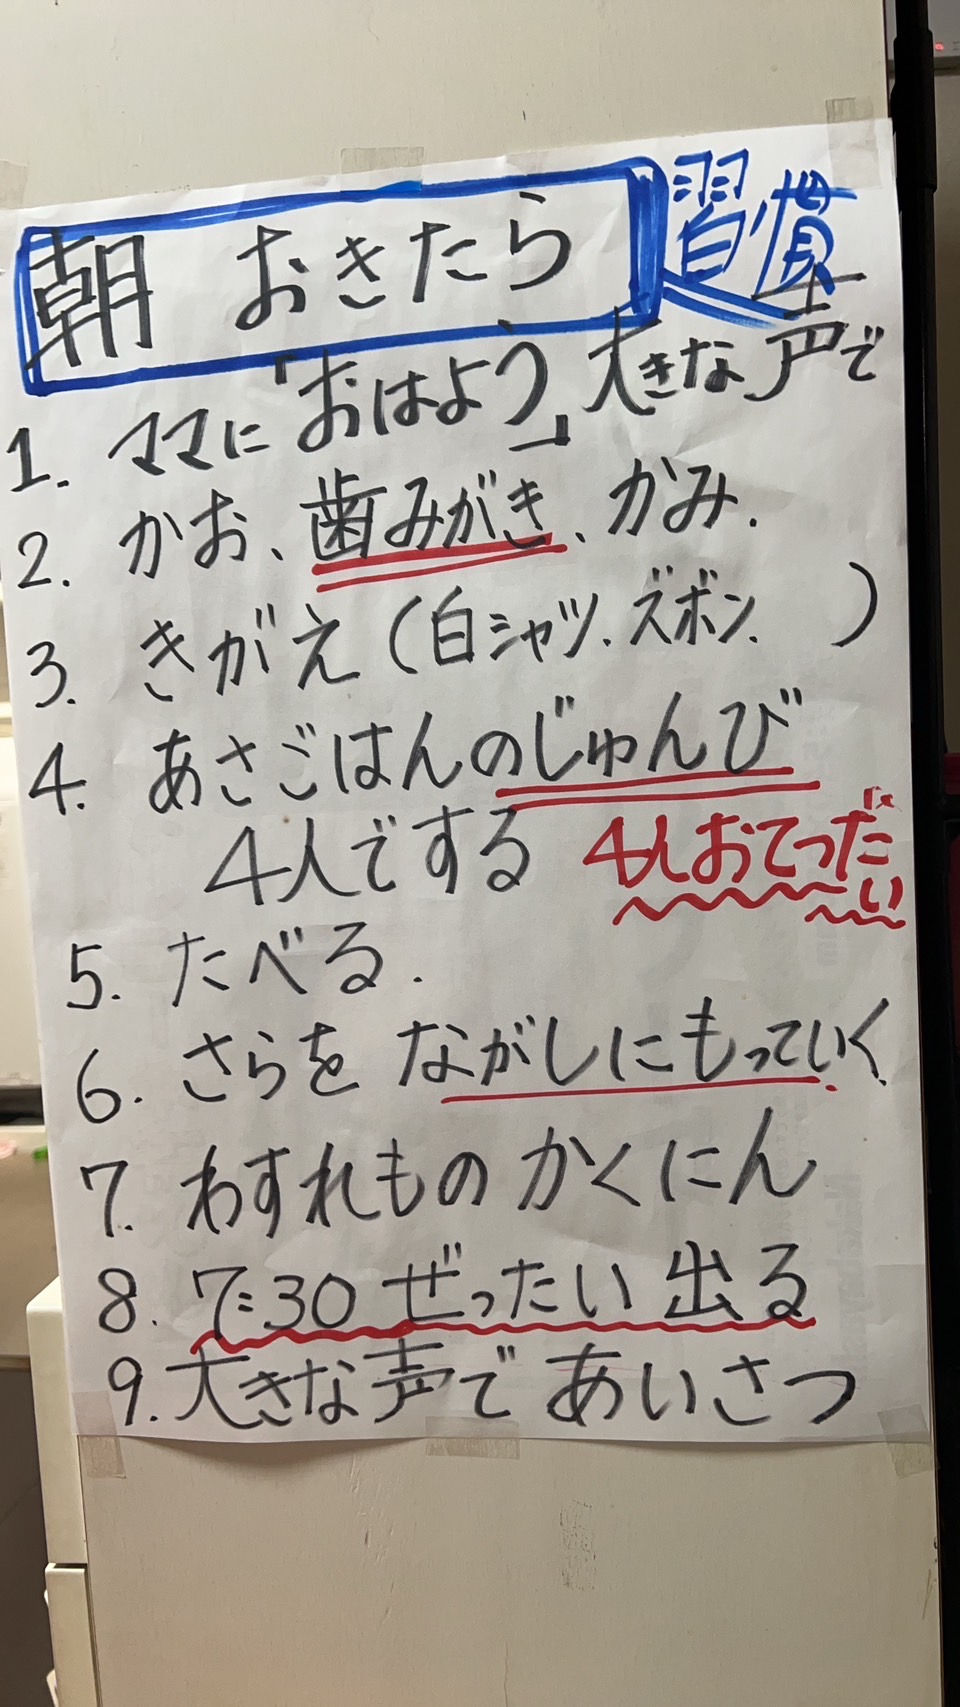 朝 おきたら 習慣
1. ママに「おはよう」大きな声で
2. かお、歯みがき、かみ.
3. きがえ(白シャツ.ズボン. )
4. あさごはんのじゅんび
4人でする 4人おてつだい
5. たべる.
6. さらを ながしにもっていく.
7. わすれもの かくにん
8. 7:30 ぜったい 出る
9. 大きな声で あいさつ